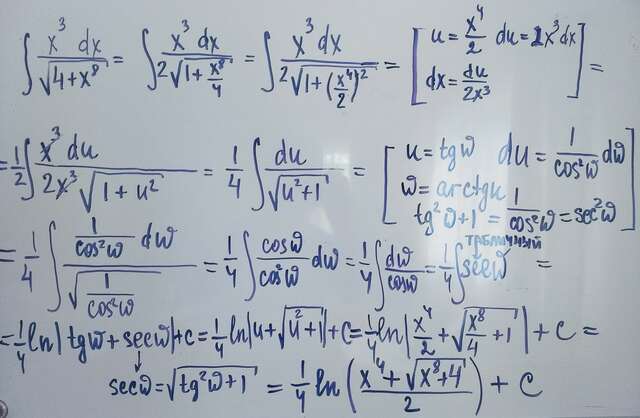 ∫ x³ dx / √(4+x⁸) = ∫ x³ dx / 2√(1+x⁸/4) = ∫ x³dx / 2√(1+(x⁴/2)²) = [ u = x⁴/2 du = 2x³dx
dx = du/2x³ ] =
= 1/2 ∫ x³ du / 2x³ √(1+u²) = 1/4 ∫ du / √(u²+1) = [ u = tgw du = 1/cos²w dw
w = arctgu
tg²w+1 = 1/cos²w = sec²w ]
= 1/4 ∫ (1/cos²w dw) / √(1/cos²w) = 1/4 ∫ cosw/cos²w dw = 1/4 ∫ dw/cosw = 1/4 ∫ secw =
табличный
= 1/4 ln| tgw + secw |+c = 1/4 ln|u+√(u²+1)|+c = 1/4 ln| x⁴/2 + √(x⁸/4 +1) | + c =
↓
secw = √(tg²w+1) = 1/4 ln ( (x⁴+√(x⁸+4)) / 2 ) + c